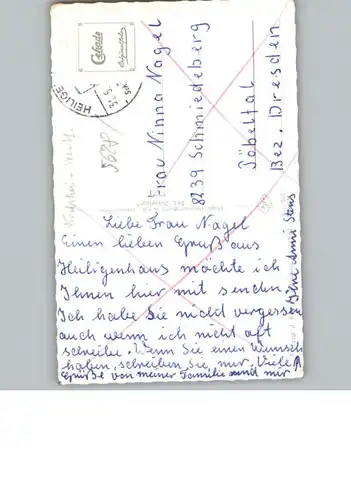 Cekade
HEILIGE
Frau Ninna Nagel
8239 Schmiedeberg
Pöbeltal
Bez. Dresden
Liebe Frau Nagel
Einen lieben Gruß aus
Heiligenhaus möchte ich
Ihnen hier mit senden
Ich habe Sie nicht vergessen
auch wenn ich nicht oft
schreibe. Wenn Sie einen Wunsch
haben, schreiben Sie, mir. Viele
Grüße von meiner Familie und mir
Ihre Anni Stens